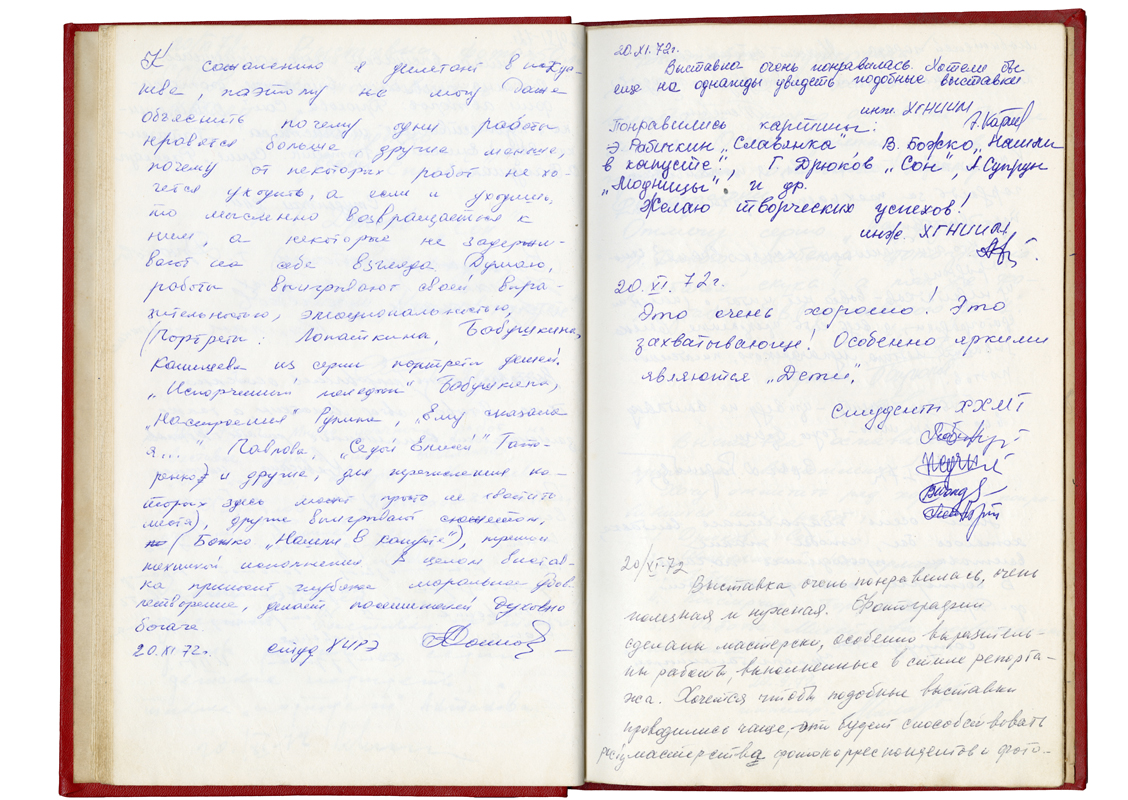 К сожалению я дилетант в искус-
стве, поэтому не могу даже
объяснить почему одни работы
нравятся больше, другие меньше,
почему от некоторых работ не хо-
чется уходить, а если и уходишь,
то мысленно возвращаешься к
ним, а некоторые не задержи-
вают на себе взгляда. Думаю,
работы выигрывают своей выра-
зительностью, эмоциональностью,
(Портреты: Лопаткина, Бабушкина,
из серии портреты детей.
"Испорченный" Бабушкина,
"Настроения" Рупина, "Ему сказала
я..." Павлова, "Седой Енисей" Тато-
ренко) и другие, для перечисления ко-
торых здесь может просто не хватить
места), другие выигрывают сюжетом,
(Божко "Нашли в капусте"),
техникой исполнения. В целом выстав-
ка приносит глубокое моральное удов-
летворение, делает посетителей духовно
богаче.
20.XI 72г. студ ХИРЭ
20.XI.72г.
Выставка очень понравилась. Хотелось бы
еще не однажды увидеть подобные выставки
инж. ХГНИИМ
Понравились картины:
Э. Рабичкин "Славянка" В. Божко "Нашли
в капусте!", Г. Дрюков "Сон", А. Супрун
"Модницы" и др.
Желаю творческих успехов!
инж. ХГНИИМ
20.XI.72г.
Это очень хорошо! Это
захватывающе! Особенно яркими
являются "Дети".
Студенты ХХМТ
20/XI-72
Выставка очень понравилась, очень
полезная и нужная. Фотографии
сделаны мастерски, особенно выразитель-
ны работы выполненные в стиле репорта-
жа. Хочется чтобы подобные выставки
проводились чаще, это будет способствовать
росту мастерства фотокорреспондентов и фото-